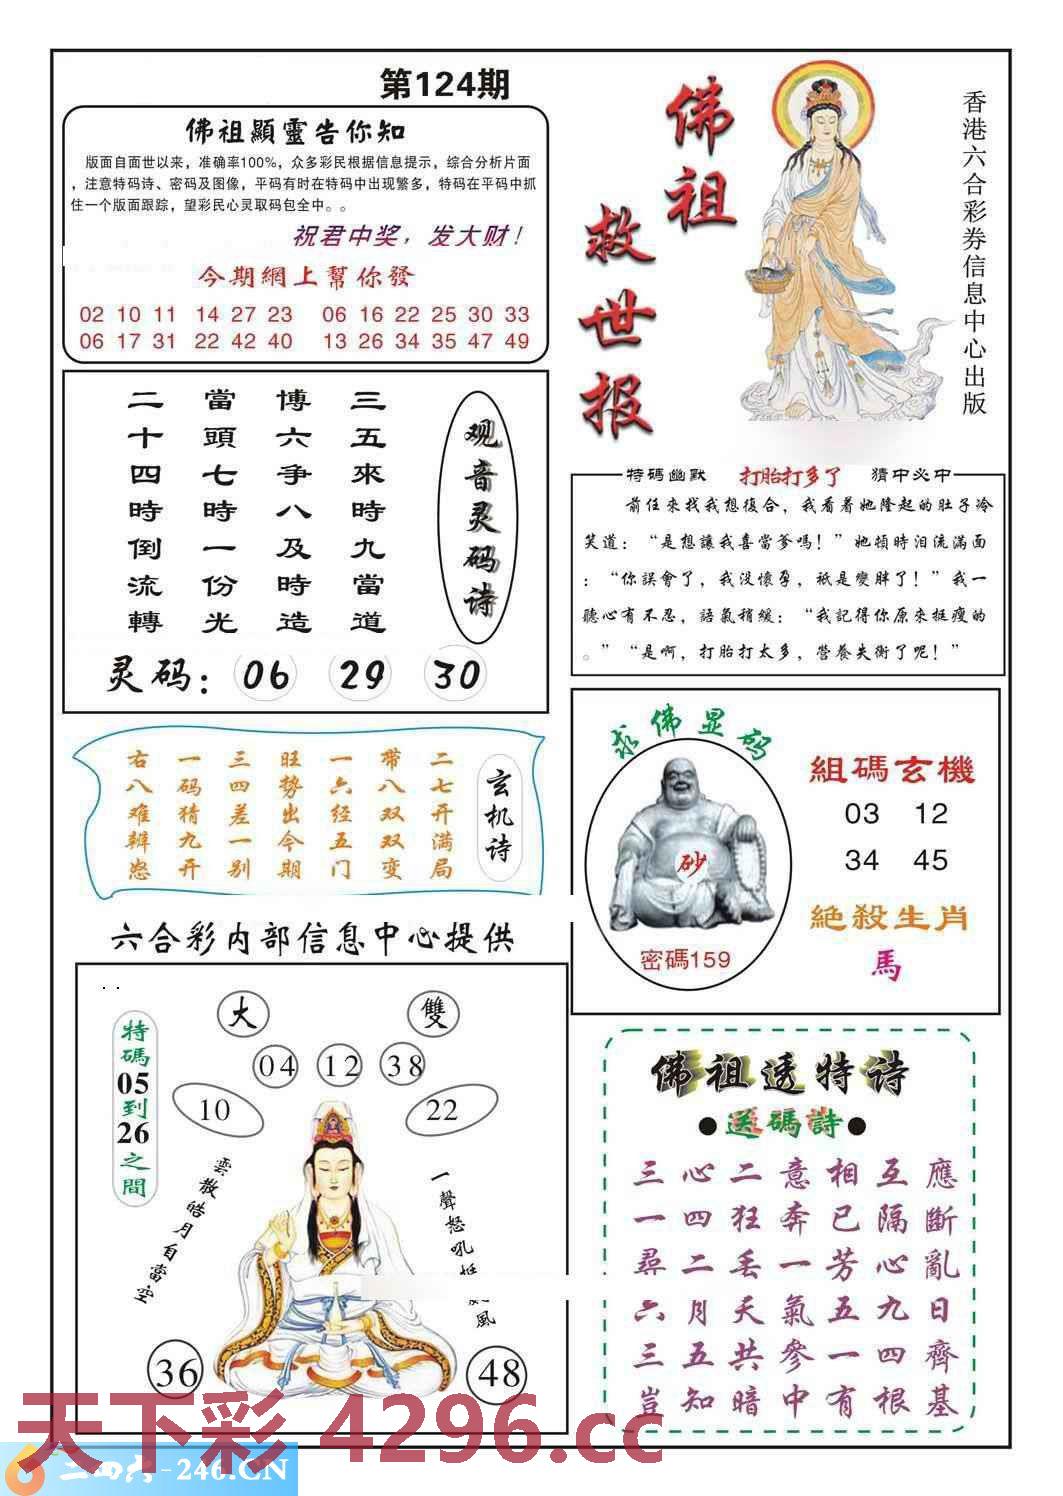 第124期
佛祖顯靈告你知
版面自面世以来，准确率100%，众多彩民根据信息提示，综合分析片面
，注意特码诗、密码及图像，平码有时在特码中出现繁多，特码在平码中抓
住一个版面跟踪，望彩民心灵取码包全中。。
祝君中奖，发大财！
今期網上幫你發
02 10 11 14 27 23 06 16 22 25 30 33
06 17 31 22 42 40 13 26 34 35 47 49
佛祖
救世报
香港六合彩券信息中心出版
观音灵码诗
三五來時九當道
博六争八及時造
當頭七時一份光
二十四時倒流轉
灵码：06 29 30
特碼幽默 打胎打多了 猜中必中
前任來找我想復合，我看着她隆起的肚子冷
笑道：“是想讓我喜當爹嗎！”她頓時泪流滿面
：“你誤會了，我没懷孕，祇是變胖了！”我一
聽心有不忍，語氣稍緩：“我記得你原來挺瘦的
。”“是啊，打胎打太多，营養失衡了呢！”
玄机诗
二七开满局
带八双双变
一六经五门
旺势出今期
三四差一别
一码猜九开
右八难辨愁
求佛显码
砂
密碼159
組碼玄機
03 12
34 45
絶殺生肖
馬
六合彩内部信息中心提供
大 雙
04 12 38
10 22
特碼05到26之間
雲散皓月自當空
一聲怒吼
風
36 48
佛祖透特诗
●送碼詩●
三心二意相互應
一四狂奔已隔斷
尋二丢一芳心亂
六月天氣五九日
三五共參一四齊
豈知暗中有根基
天下彩 4296.cc
二四六-246.CN